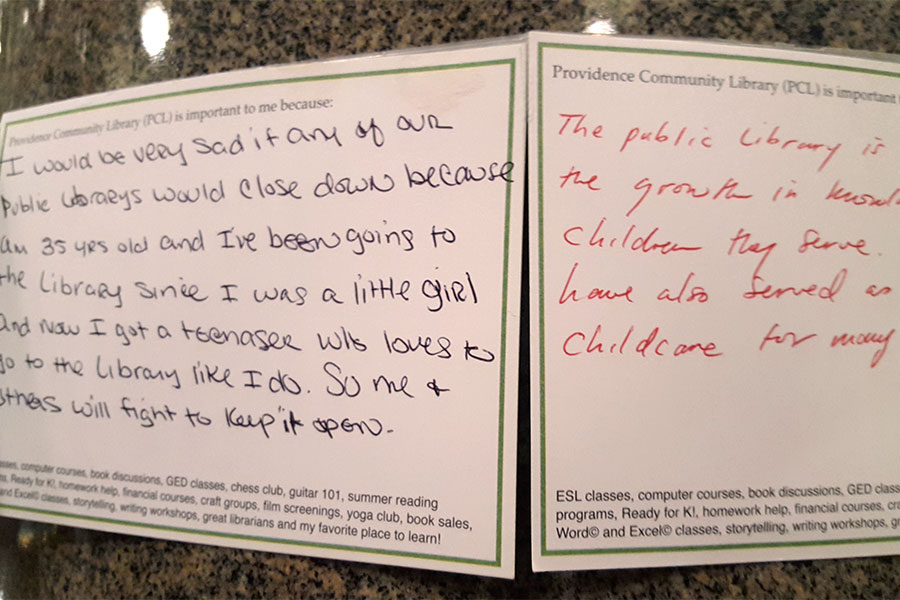 Providence Community Library (PCL) is important to me because:
I would be very sad if any of our
public Libraeys would close down because
am 35 yrs old and I've been going to
the Library since I was a little girl
And now I got a teenager who loves to
go to the Library like I do. So me &
others will fight to keep it open.
classes, computer courses, book discussions, GED classes, chess club, guitar 101, summer reading
Ready for K!, homework help, financial courses, craft groups, film screenings, yoga club, book sales,
and Excel© classes, storytelling, writing workshops, great librarians and my favorite place to learn!
Providence Community Library (PCL) is important
The public Library is
the growth in
children they serve.
have also served as
childcare for many
ESL classes, computer courses, book discussions, GED
programs, Ready for K!, homework help, financial courses,
Word© and Excel© classes, storytelling, writing workshops,